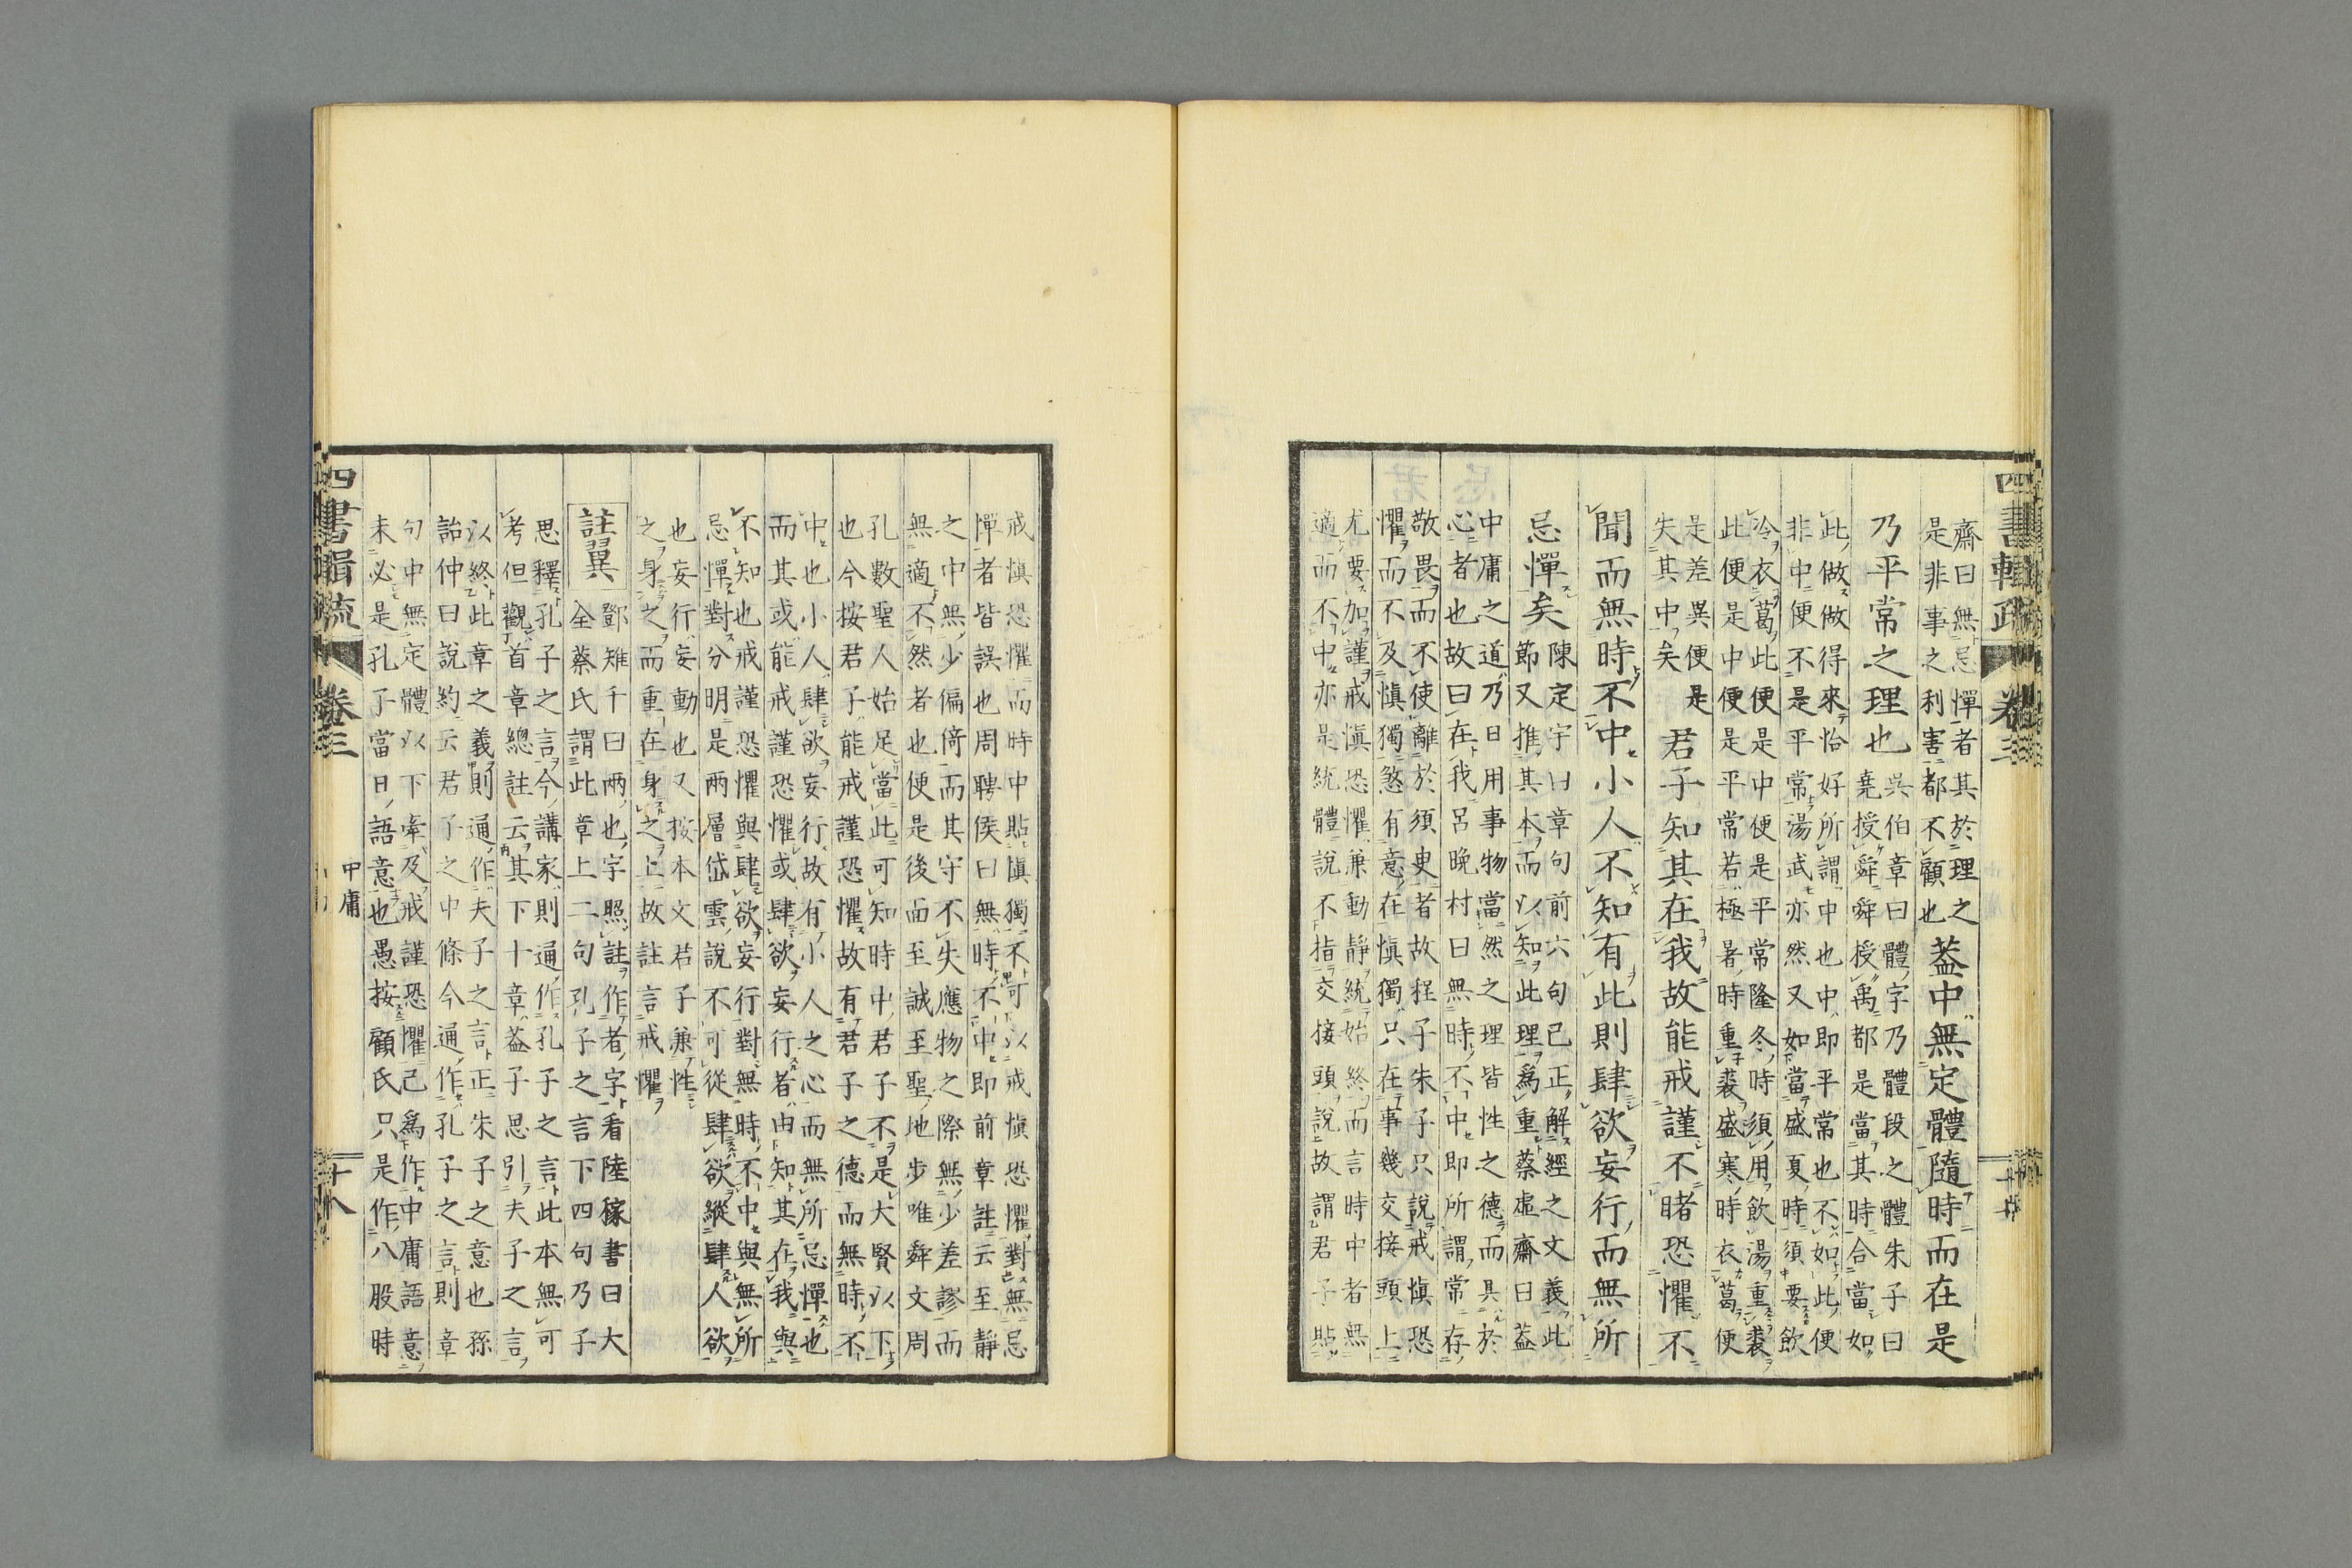 四書輯疏 卷三
齋曰無忌憚者其於理之
是非事之利害都不顧也
蓋中無定體隨時而在是
乃平常之理也
吳伯章曰體字乃體段之體朱子曰
堯授舜舜授禹都是當其時合當如
此做做得來恰好所謂中也中即平常也不如此便
非中便不是平常湯武亦然又如當盛夏時須要飲
冷衣葛此便是中便是平常隆冬時須用飲湯重裘
此便是中便是平常若極暑時重裘盛寒時衣葛便
是差異便是
失其中矣
君子知其在我故能戒謹不睹恐懼不
聞而無時不中小人不知有此則肆欲妄行而無所
忌憚矣
陳定宇曰章句前六句已正解經之文義此
節又推其本而以知此理爲重蔡虛齋曰蓋
中庸之道乃日用事物當然之理皆性之德而具於
心者也故曰在我呂晚村曰無時不中即所謂常存
敬畏而不使離於須臾者故程子朱子只說戒愼恐
懼而不及愼獨煞有意在愼獨只在事幾交接頭上
尤要加謹戒愼恐懼兼動靜統始終而言時中者無
適而不中亦是統體說不指交接頭說故謂君子貼
戒愼恐懼而時中貼愼獨不可以戒愼恐懼對無忌
憚者皆誤也周聘侯曰無時不中即前章註云至靜
之中無少偏倚而其守不失應物之際無少差謬而
無適不然者也便是後面至誠至聖地步唯舜文周
孔數聖人始足當此可知時中君子不是大賢以下
也今按君子能戒謹恐懼故有君子之德而無時不
中也小人肆欲妄行故有小人之心而無所忌憚也
而其或能戒謹恐懼或肆欲妄行者由知其在我與
不知也戒謹恐懼與肆欲妄行對無時不中與無所
忌憚對分明是兩層岱雲說不可從肆欲縱肆人欲
也妄行妄動也又按本文君子兼性
之身之而重在身之上故註言戒懼
註翼
鄧雉千曰兩也字照註作者字看陸稼書曰大
全蔡氏謂此章上二句孔子之言下四句乃子
思釋孔子之言今講家則通作孔子之言此本無可
考但觀首章總註云其下十章蓋子思引夫子之言
以終此章之義則通作夫子之言正朱子之意也孫
詒仲曰說約云君子之中條今通作孔子之言則章
句中無定體以下牽及戒謹恐懼已爲作中庸語意
未必是孔子當日語意也愚按顧氏只是作八股時
四書輯疏 卷三 中庸 十八